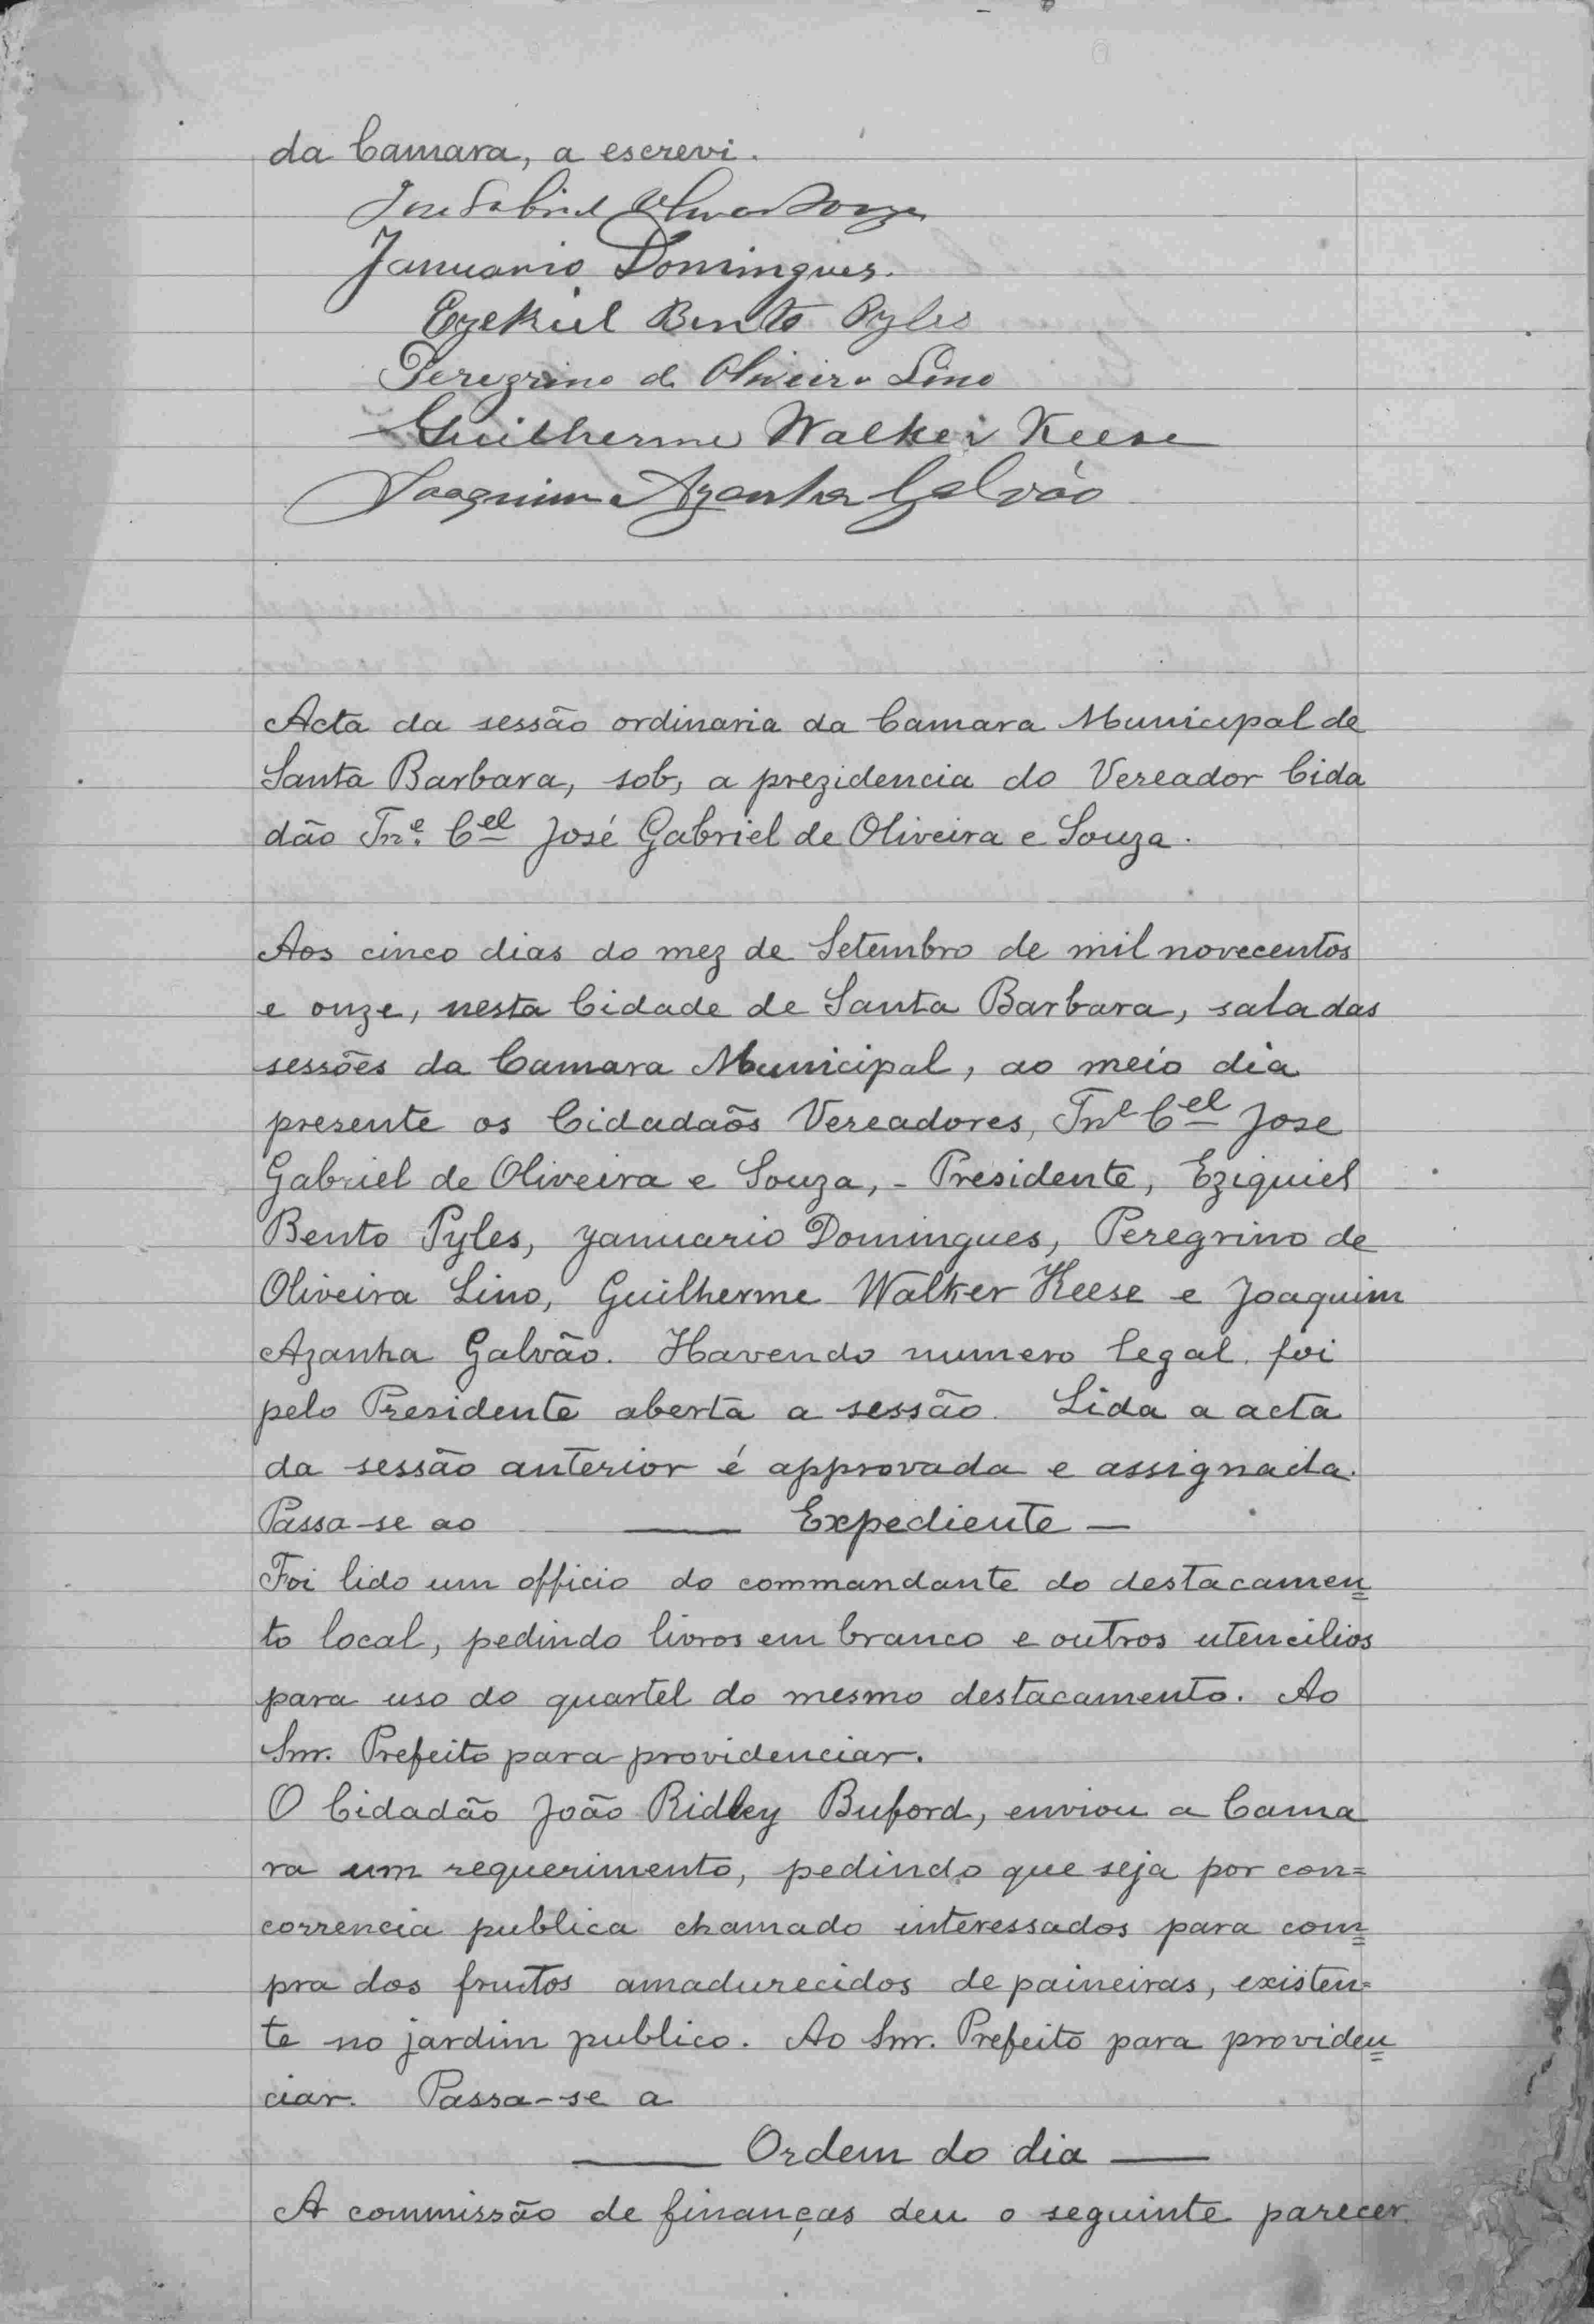 da Camara, a escrevi.
José Gabriel Oliveira Souza
Januario Domingues.
Ezekiel Bento Pyles
Peregrino de Oliveira Lino
Guilherme Walker Keese
Joaquim Azanha Galvão
Acta da sessão ordinaria da Camara Municipal de
Santa Barbara, sob, a prezidencia do Vereador Cida
dão Tne. Cel José Gabriel de Oliveira e Souza.
Aos cinco dias do mez de Setembro de mil novecentos
e onze, nesta Cidade de Santa Barbara, sala das
sessões da Camara Municipal, ao meio dia
presente os Cidadaõs Vereadores, Tnel Cel Jose
Gabriel de Oliveira e Souza, - Presidente, Eziquiel
Bento Pyles, Januario Domingues, Peregrino de
Oliveira Lino, Guilherme Walker Keese e Joaquim
Azanha Galvão. Havendo numero legal foi
pelo Presidente aberta a sessão. Lida a acta
da sessão anterior é approvada e assignada.
Passa-se ao — Expediente —
Foi lido um officio do commandante do destacamen=
to local, pedindo livros em branco e outros utencilios
para uso do quartel do mesmo destacamento. Ao
Snr. Prefeito para providenciar.
O Cidadão João Ridley Buford, enviou a Cama
ra um requerimento, pedindo que seja por con=
correncia publica chamado interessados para com=
pra dos fructos amadurecidos de paineiras, existen=
te no jardim publico. Ao Snr. Prefeito para providen=
ciar. Passa-se a
— Ordem do dia —
A commissão de finanças deu o seguinte parecer